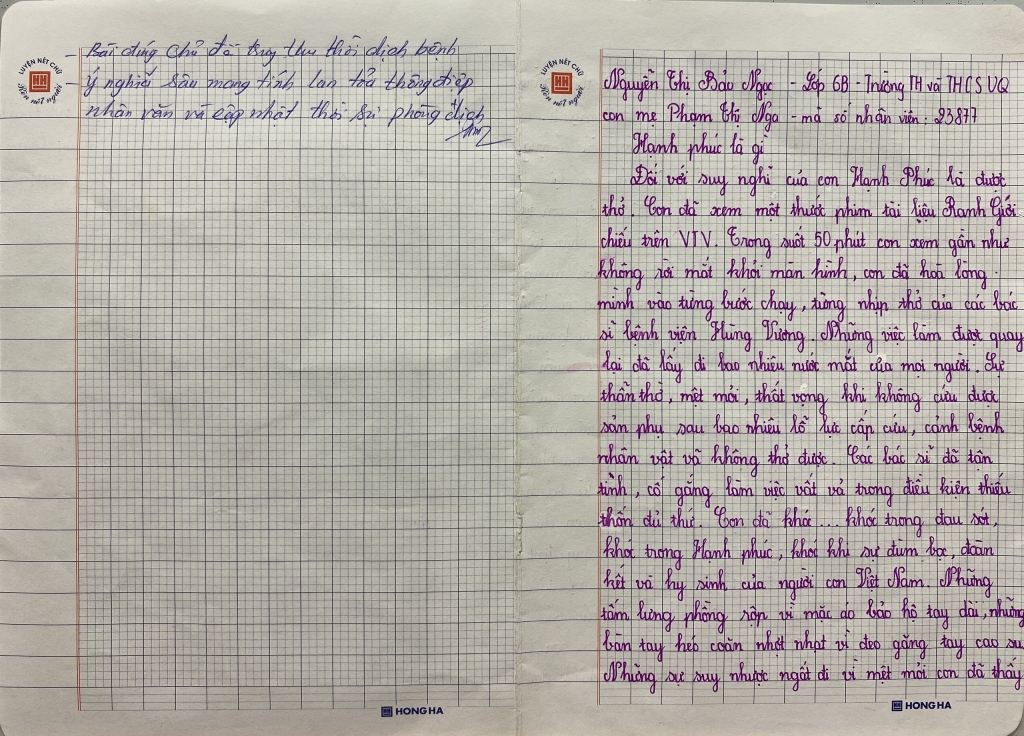 - Bài đúng chủ đề truy thu thời dịch bệnh
- Ý nghĩa sâu mang tính lan tỏa thông điệp
nhân văn và cập nhật thời sự phòng dịch
LUYỆN NÉT CHỮ
HH
Rèn nết người
HONG HA
LUYỆN NÉT CHỮ
HH
Rèn nết người
Nguyễn Thị Bảo Ngọc - Lớp 6B - Trường TH và THCS UQ
con mẹ Phạm Thị Nga - mã số nhân viên : 23877
Hạnh phúc là gì
Đối với suy nghĩ của con Hạnh Phúc là được
thở. Con đã xem một thước phim tài liệu Ranh Giới
chiếu trên VTV. Trong suốt 50 phút con xem gần như
không rời mắt khỏi màn hình, con đã hoà lòng
mình vào từng bước chạy, từng nhịp thở của các bác
sĩ bệnh viện Hùng Vương. Những việc làm được quay
lại đã lấy đi bao nhiêu nước mắt của mọi người. Sự
thẫn thờ, mệt mỏi, thất vọng khi không cứu được
sản phụ sau bao nhiêu lỗ lực cấp cứu, cảnh bệnh
nhân vật vã không thở được. Các bác sĩ đã tận
tình, cố gắng làm việc vất vả trong điều kiện thiếu
thốn đủ thứ. Con đã khóc... khóc trong đau sót,
khóc trong Hạnh phúc, khóc khi sự đùm bọc, đoàn
kết và hy sinh của người con Việt Nam. Những
tấm lưng phồng rộp vì mặc áo bảo hộ tay dài, những
bàn tay héo coăn nhợt nhạt vì đeo găng tay cao su
Những sự suy nhược ngất đi vì mệt mỏi con đã thấy
HONG HA